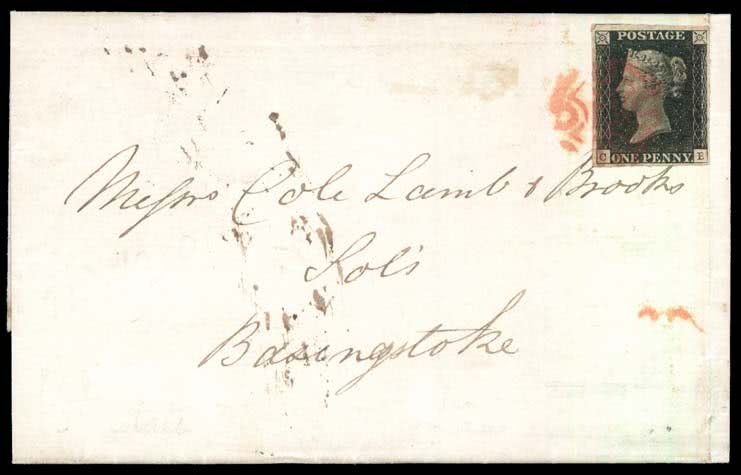 POSTAGE
C ONE PENNY E
Messrs Cole Lamb & Brooks
Sols
Basingstoke